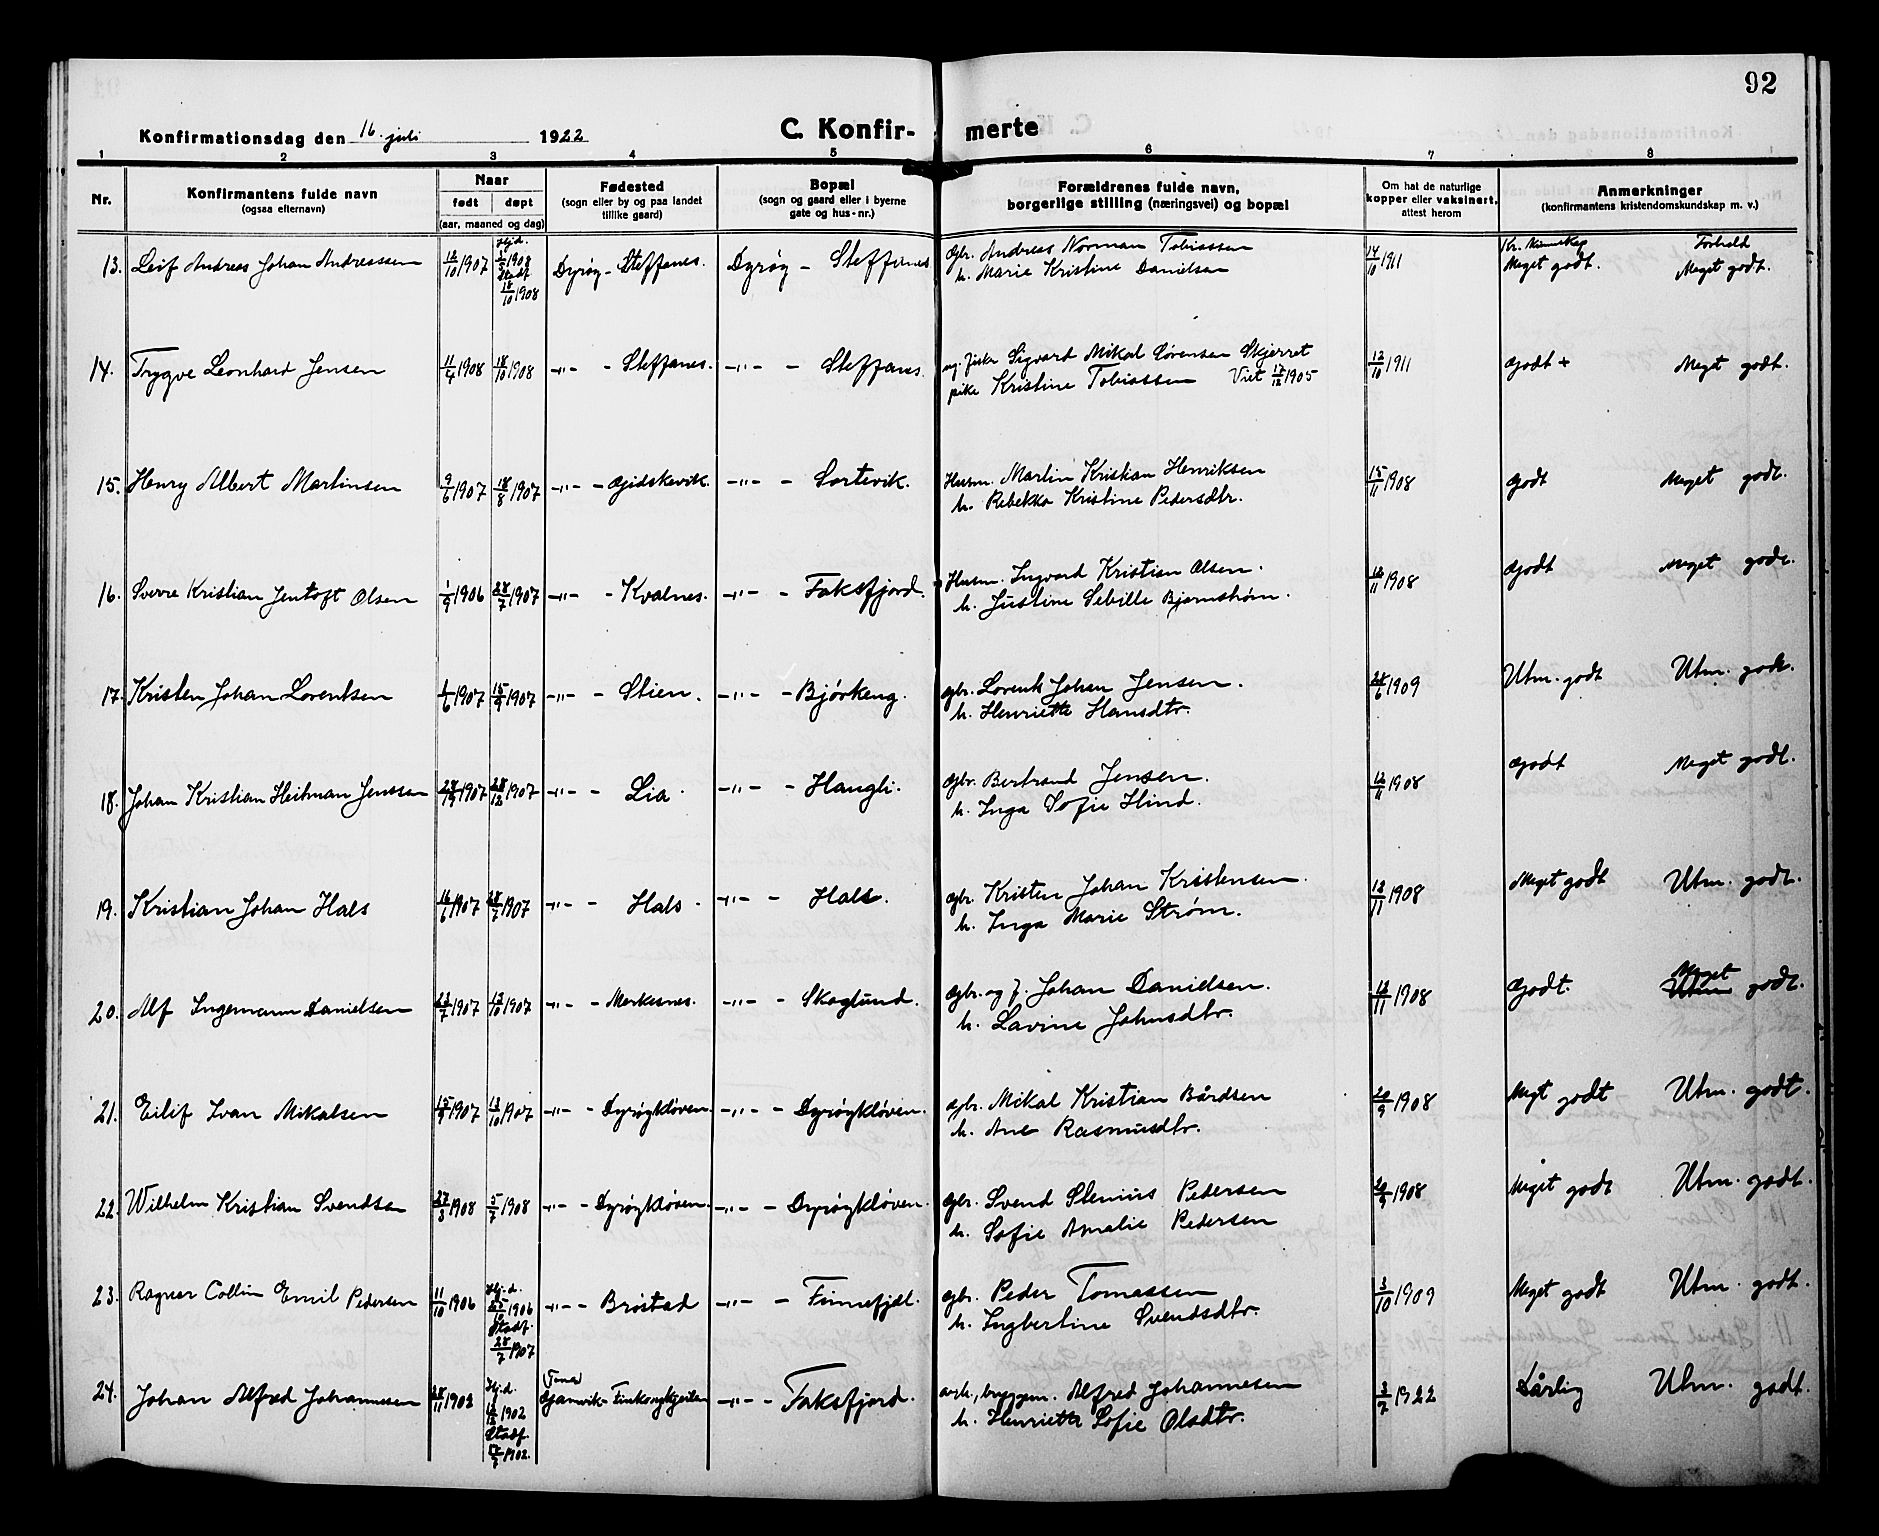 92
Konfirmationsdag den 16. juli 1922 C. Konfir- merte
1 2 3 4 5 6 7 8
Nr. Konfirmantens fulde navn (ogsaa efternavn) Naar født døpt (aar, maaned og dag) Fødested (sogn eller by og paa landet tillike gaard) Bopæl (sogn og gaard eller i byerne gate og hus-nr.) Forældrenes fulde navn, borgerlige stilling (næringsvei) og bopæl Om hat de naturlige kopper eller vaksinert, attest herom Anmerkninger (konfirmantens kristendomskundskap m. v.)
Hjd. Kr. Kunnskap Forhold
13. Leif Andreas Johan Andreassen 12/10 1907 1908 Stadf. 18/10 1908 Dyrøy - Steffanes. Dyrøy - Steffanes gbr. Andreas Norman Tobiassen 14/10 1911 Meget godt. Meget godt.
h. Marie Kristine Danielsen
14. Trygve Leonhard Jensen 11/4 1908 18/10 1908 -"- - Steffanes. -"- - Steffanes. ug. fisker Sigvard Mikal Sørensen Skjerret 12/10 1911 Godt + Meget godt.
pike Kristine Tobiassen Viet 17/12 1905
15. Henry Albert Martinsen 9/6 1907 18/8 1907 -"- - Gjidskevik. -"- - Sortevik. Husm. Martin Kristian Henriksen 15/11 1908 Godt Meget godt.
h. Rebekka Kristine Pedersdtr.
16. Sverre Kristian Jentoft Olsen 1/9 1906 28/7 1907 -"- - Kvalnes. -"- - Faksfjord. Husm. Ingvard Kristian Olsen. 12/11 1908 Godt Meget godt.
h. Justine Sebille Bjørnstrøm.
17. Kristen Johan Lorentsen 1/6 1907 15/9 1907 -"- - Stien. -"- - Bjørkeng. gbr. Lorents Johan Jensen. 28/6 1909 Utm. godt Utm. godt.
h. Henriette Hansdtr.
18. Johan Kristian Heitman Jenssen 1907 28/12 1907 -"- - Lia. -"- - Haugli. gbr. Bertrand Jensen. 12/11 1908 Godt Meget godt.
h. Inga Sofie Hind.
19. Kristian Johan Hals 16/6 1907 28/7 1907 -"- - Hals. -"- - Hals. gbr. Kristen Johan Kristensen. 12/11 1908 Meget godt Utm. godt.
h. Inga Marie Strøm.
20. Alf Ingemann Danielsen 23/7 1907 13/10 1907 -"- - Merkesnes. -"- - Skoglund. gbr. og f. Johan Danielsen. 12/11 1908 Godt. Meget Utm godt.
h. Lavine Johnsdtr.
21. Eilif Ivan Mikalsen 15/9 1907 13/10 1907 -"- - Dyrøykløven. -"- - Dyrøykløven. gbr. Mikal Kristian Bårdsen 20/9 1908 Megt godt Utm. godt.
h. Ane Rasmusdtr.
22. Wilhelm Kristian Svendsen 27/3 1908 5/7 1908 -"- - Dyrøykløven. -"- - Dyrøykløven. gbr. Svend Stenius Pedersen 20/9 1908 Meget godt Utm. godt.
h. Sofie Amalie Pedersen
23. Ragnar Collin Emil Pedersen 11/10 1906 Hj.d. 1906 Stadf. 28/7 1907 -"- - Brøstad -"- - Finnefjell. gbr. Peder Tomassen 3/10 1909 Meget godt Utm. godt.
h. Ingbertine Svendsdtr.
24. Johan Alfred Johannesen 28/11 1902 Hj.d. 1902 Stadf. 1902. -"- - Faksfjord. arb., byggm. Alfred Johannesen 3/7 1922 Dårlig Utm. godt.
h. Henriette Sofie Olsdtr.